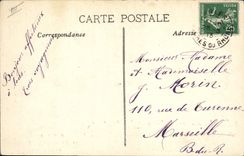 CARTE POSTALE
Correspondance
Adresse
Monsieur Madame
et Mademoiselle
J. Morin
110, rue de Turenne
Marseille
B. du R.
Bonjour affectueux
à tous